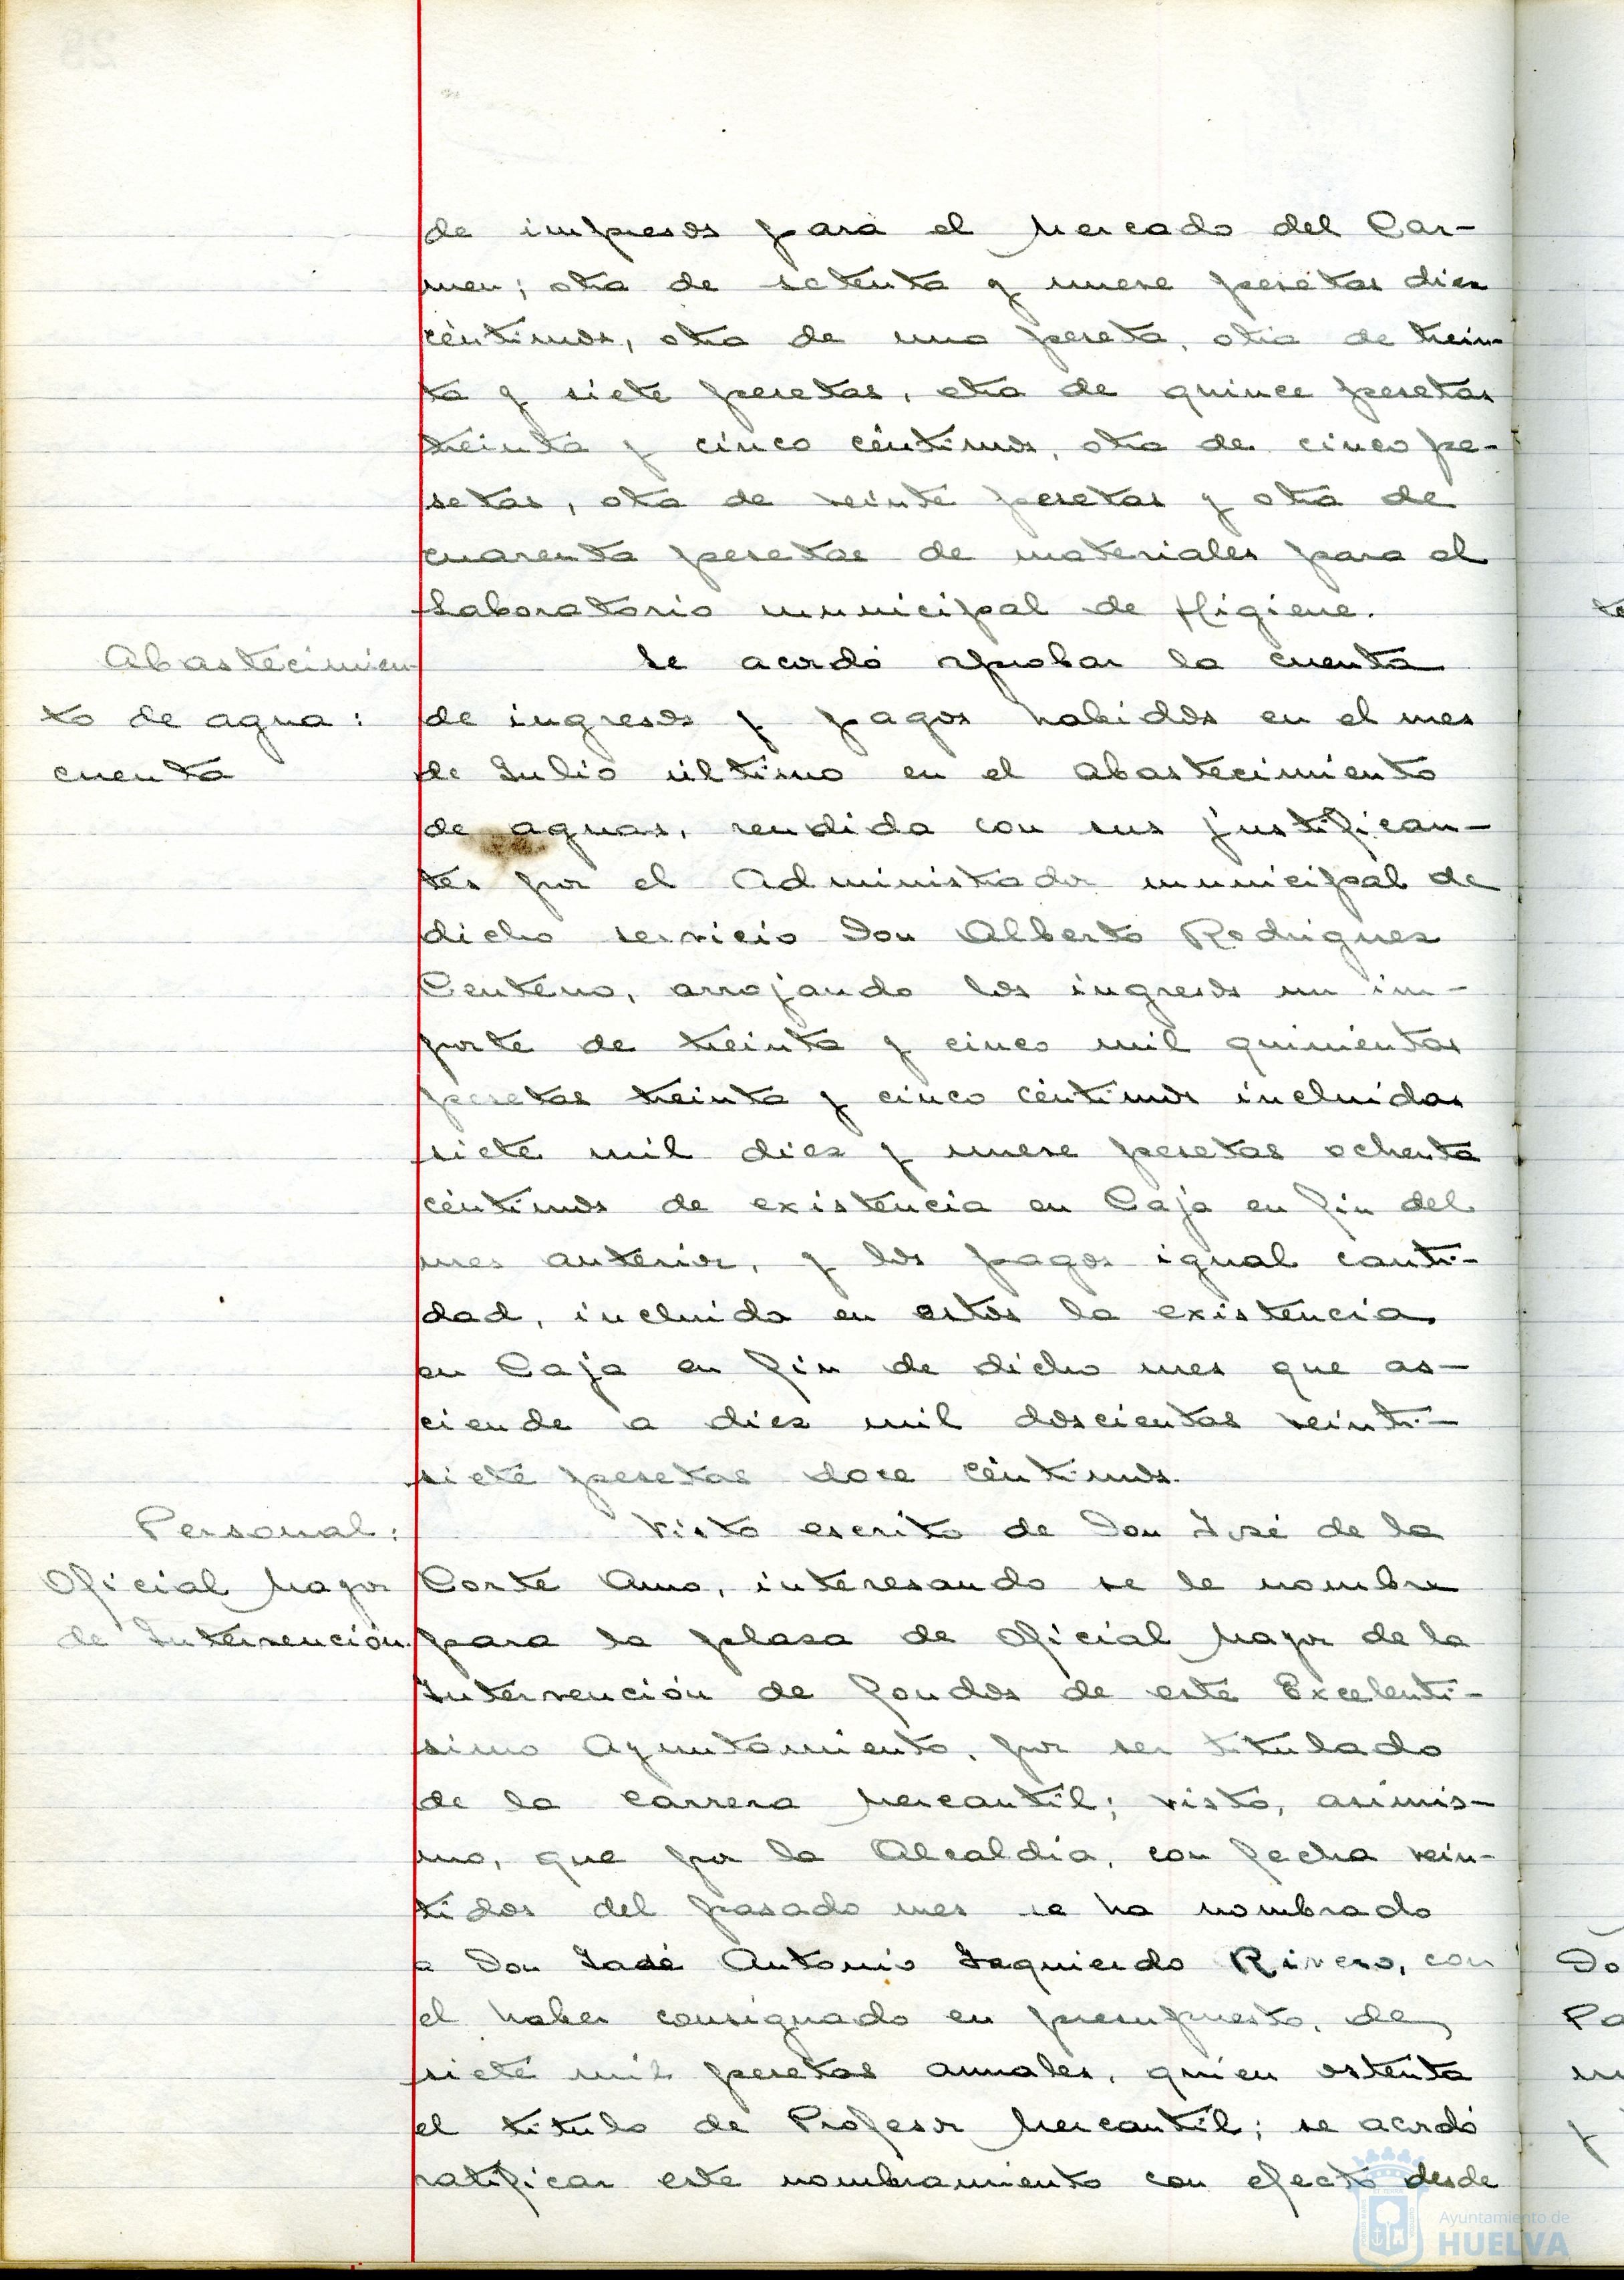 de impresos para el Mercado del Car-
men; otra de setenta y nueve pesetas diez
céntimos, otra de una peseta, otra de trein-
ta y siete pesetas, otra de quince pesetas
treinta y cinco céntimos, otra de cinco pe-
setas, otra de veinte pesetas y otra de
cuarenta pesetas de materiales para el
Laboratorio municipal de Higiene.
Abastecimien-
to de agua:
cuenta
Se acordó aprobar la cuenta
de ingresos y pagos habidos en el mes
de Julio último en el abastecimiento
de aguas, rendida con sus justifican-
tes por el Administrador municipal de
dicho servicio Don Alberto Rodriguez
Centeno, arrojando los ingresos un im-
porte de treinta y cinco mil quinientas
pesetas treinta y cinco céntimos incluidas
siete mil diez y nueve pesetas ochenta
céntimos de existencia en Caja en fin del
mes anterior, y los pagos igual canti-
dad, incluida en estos la existencia
en Caja en fin de dicho mes que as-
ciende a diez mil doscientas veinti-
siete pesetas doce céntimos.
Personal:
Oficial Mayor
de Intervención
Visto escrito de Don José de la
Corte Amo, interesando se le nombre
para la plaza de Oficial Mayor de la
Intervención de fondos de este Excelentí-
simo Ayuntamiento, por ser titulado
de la carrera Mercantil; visto, asimis-
mo, que por la Alcaldía, con fecha vein-
tidos del pasado mes se ha nombrado
a Don José Antonio Izquierdo Rivero, con
el haber consignado en presupuesto, de
siete mil pesetas anuales, quien ostenta
el título de Profesor Mercantil; se acordó
ratificar este nombramiento con efecto desde
Ayuntamiento de
HUELVA